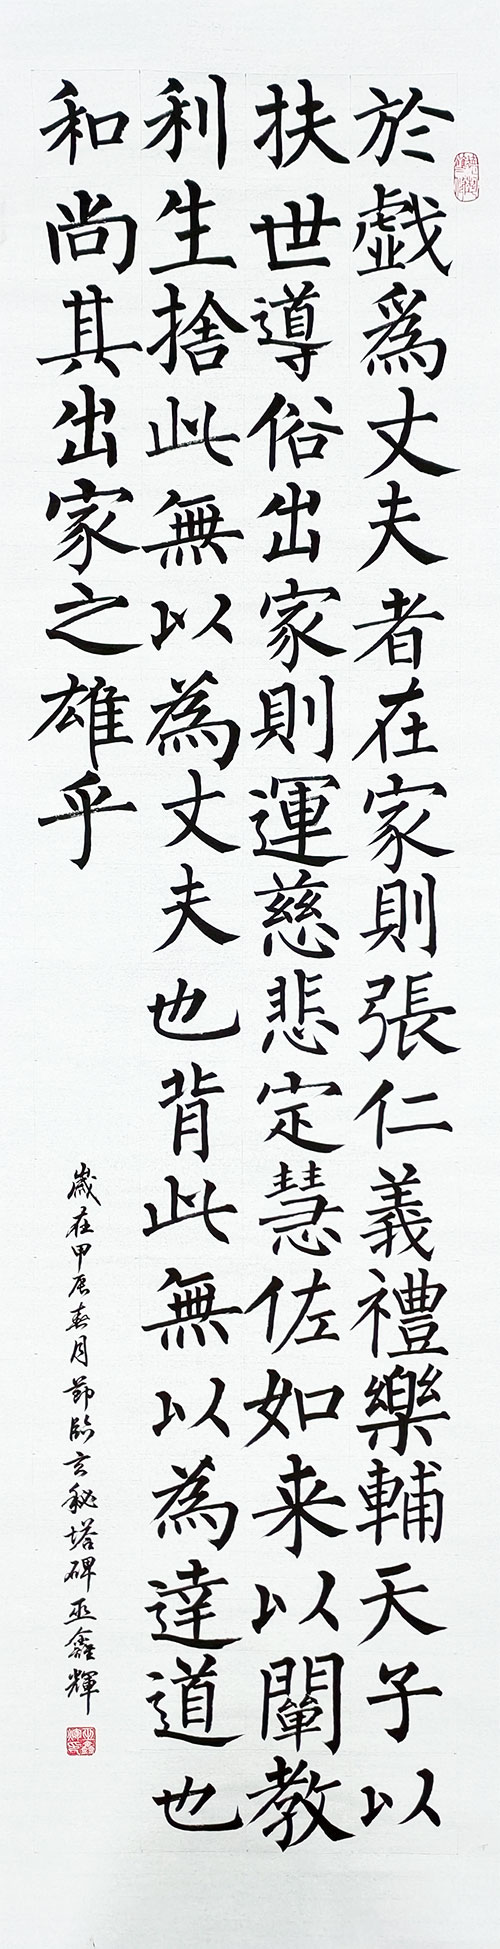 於戲為丈夫者在家則張仁義禮樂輔天子以
扶世導俗出家則運慈悲定慧佐如来以闡教
利生捨此無以為丈夫也背此無以為達道也
和尚其出家之雄乎
歲在甲辰春月節臨玄秘塔碑巫鑫輝